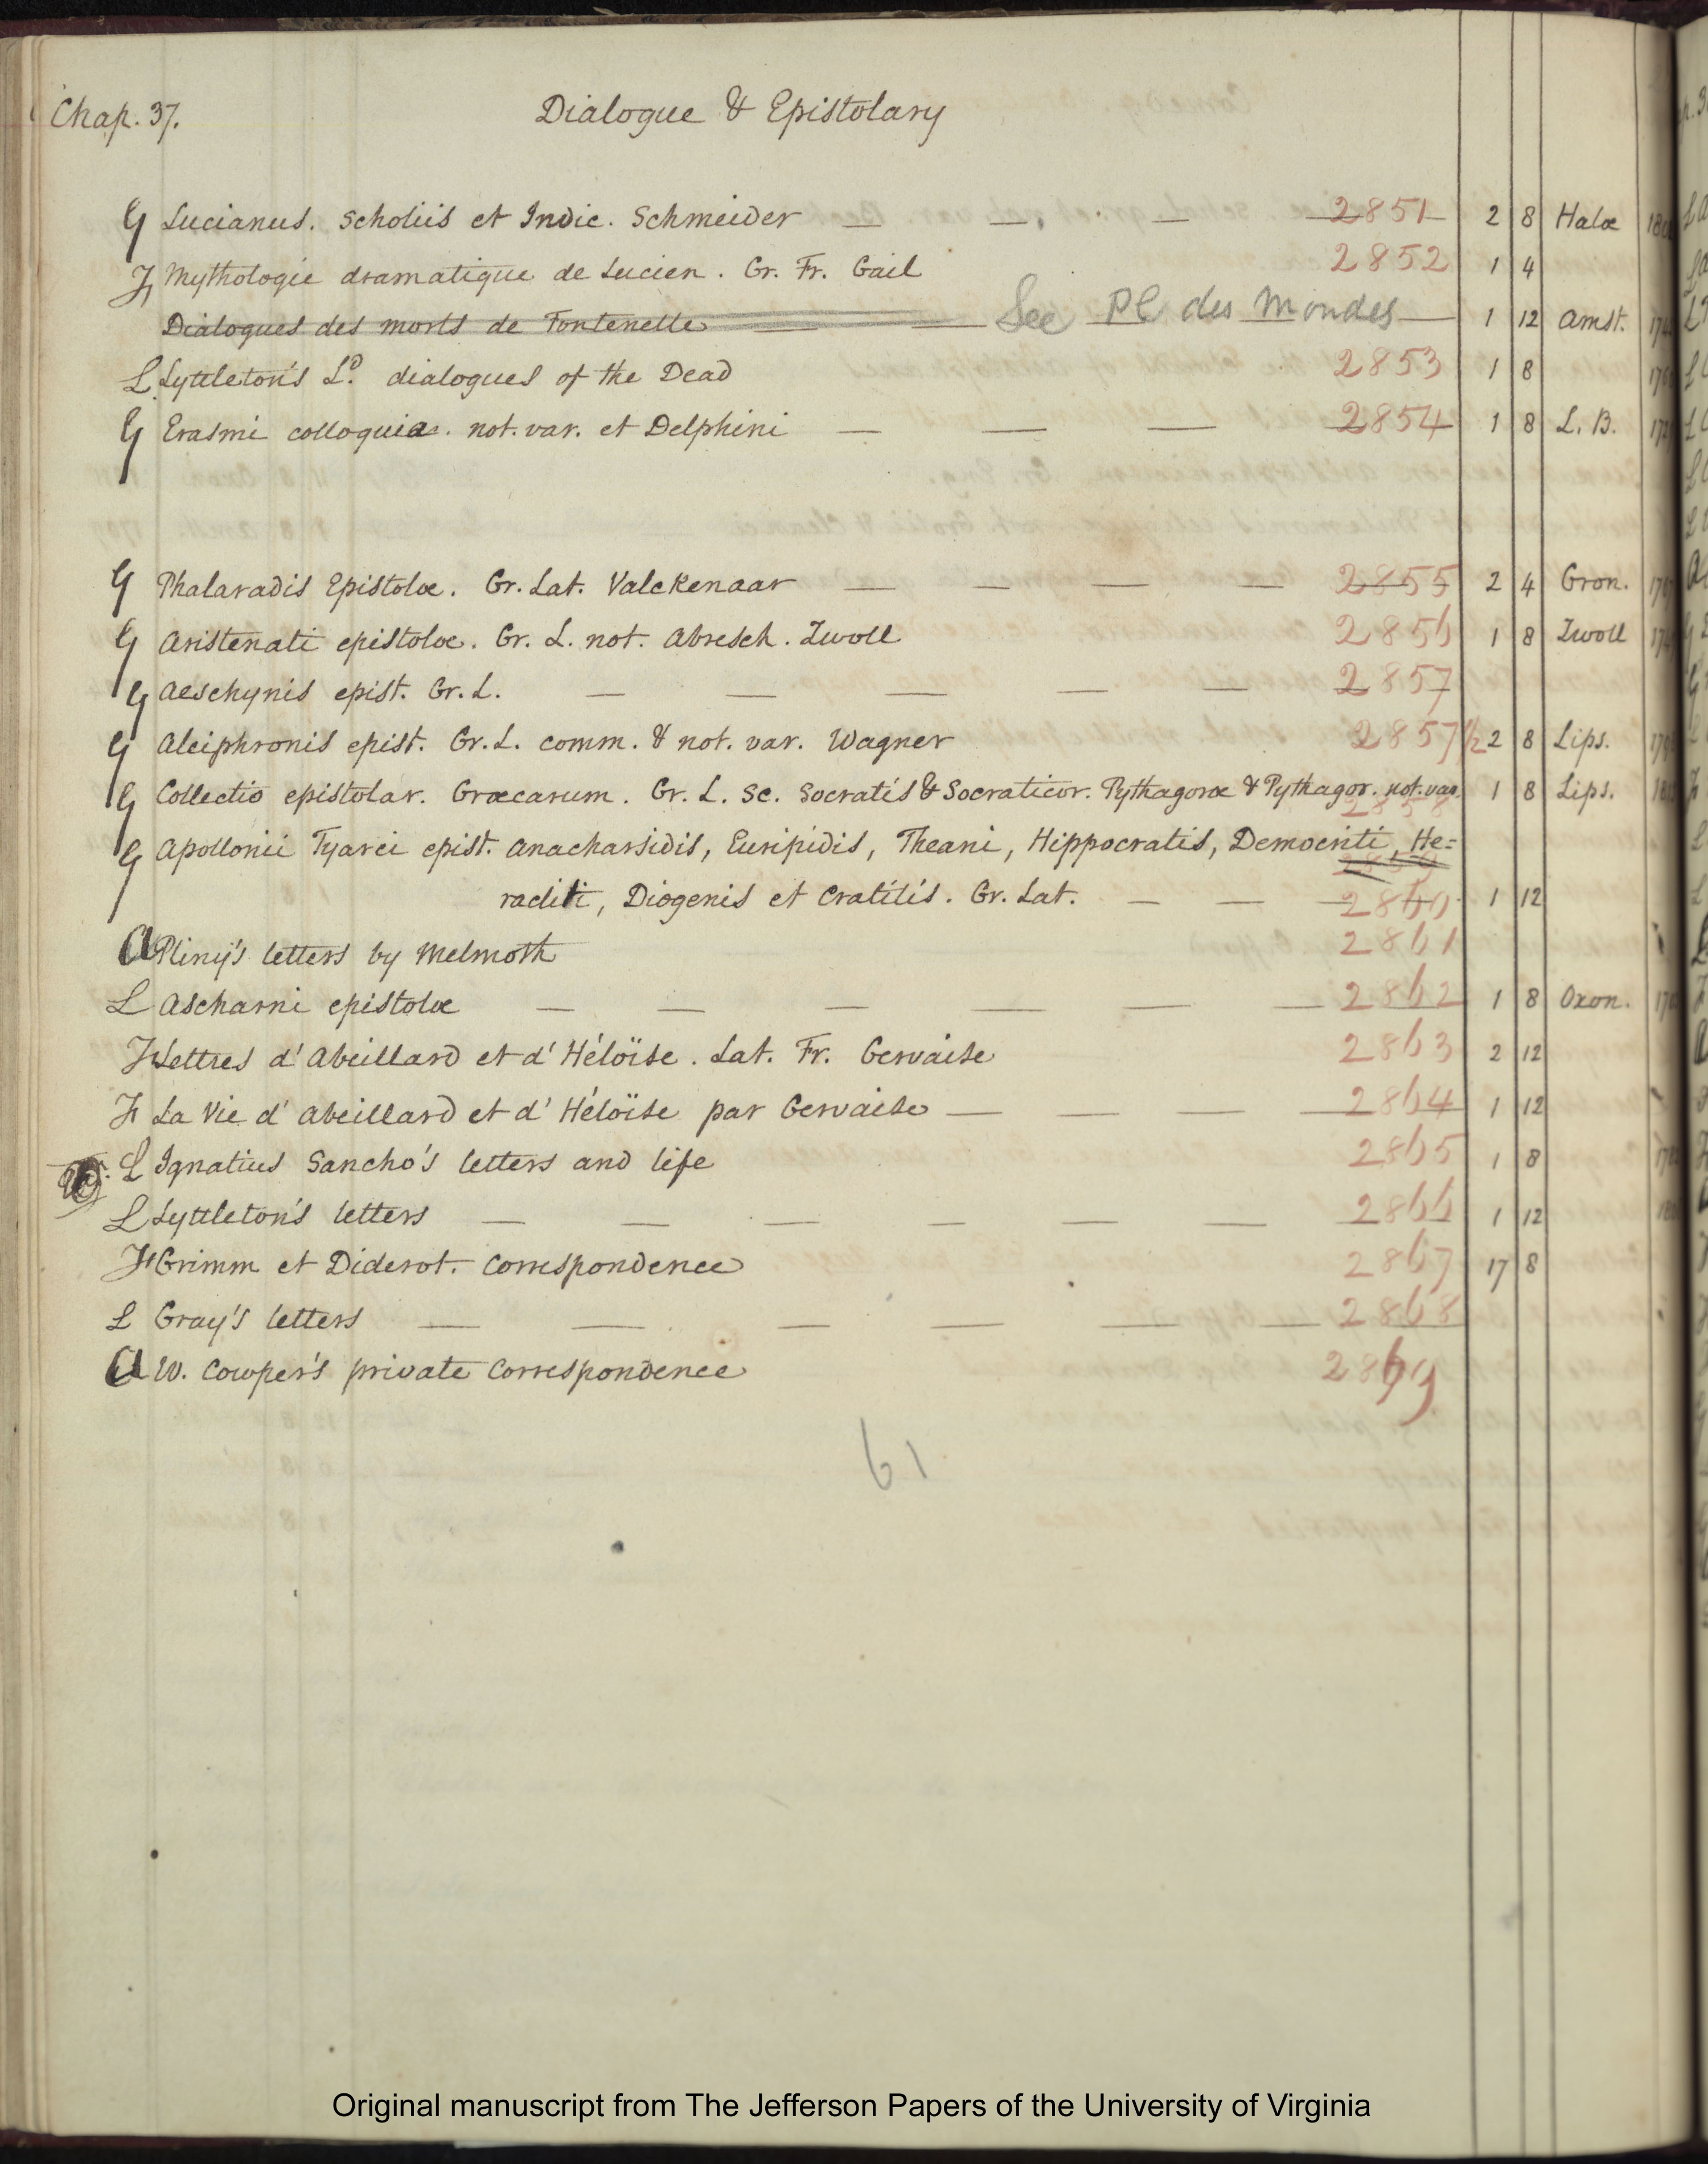 Chap. 37. Dialogue & Epistolary
G Lucianus. Scholiis et Indic. Schmeider — — — 2851 2 8 Halæ
F Mythologie dramatique de Lucien. Gr. Fr. Gail 2852 1 4
Dialogues des morts de Fontenelle — See Pl des Mondes — 1 12 Amst.
L Lyttleton's Ld. dialogues of the Dead 2853 1 8
G Erasmi colloquia. not. var. et Delphini — — — 2854 1 8 L. B.
G Phalaradis Epistolæ. Gr. Lat. Valckenaar — — — — 2855 2 4 Gron.
G Aristenati epistolæ. Gr. L. not. Abresch. Zwoll 2856 1 8 Zwoll
G Aeschynis epist. Gr. L. — — — — — 2857
G Alciphronis epist. Gr. L. comm. & not. var. Wagner 2857 1/2 2 8 Lips.
G Collectio epistolar. Græcarum. Gr. L. sc. Socratis & Socraticor. Pythagoræ & Pythagor. not. var. 1 8 Lips.
2858
G Apollonii Tyanei epist. Anacharsidis, Euripidis, Theani, Hippocratis, Democriti, He=
2859
racliti, Diogenis et Cratitis. Gr. Lat. — — — 2860 1 12
A Pliny's letters by Melmoth 2861
L Aschami epistolæ — — — — — — 2862 1 8 Oxon.
F Lettres d'Abeillard et d'Héloïse. Lat. Fr. Gervaise 2863 2 12
F La Vie d'Abeillard et d'Héloïse par Gervaise — — — — 2864 1 12
L Ignatius Sancho's letters and life 2865 1 8
L Lyttleton's letters — — — — — — 2866 1 12
F Grimm et Diderot. Correspondence 2867 17 8
L Gray's letters — — — — — — 2868
A W. Cowper's private Correspondence 2869
61
Original manuscript from The Jefferson Papers of the University of Virginia